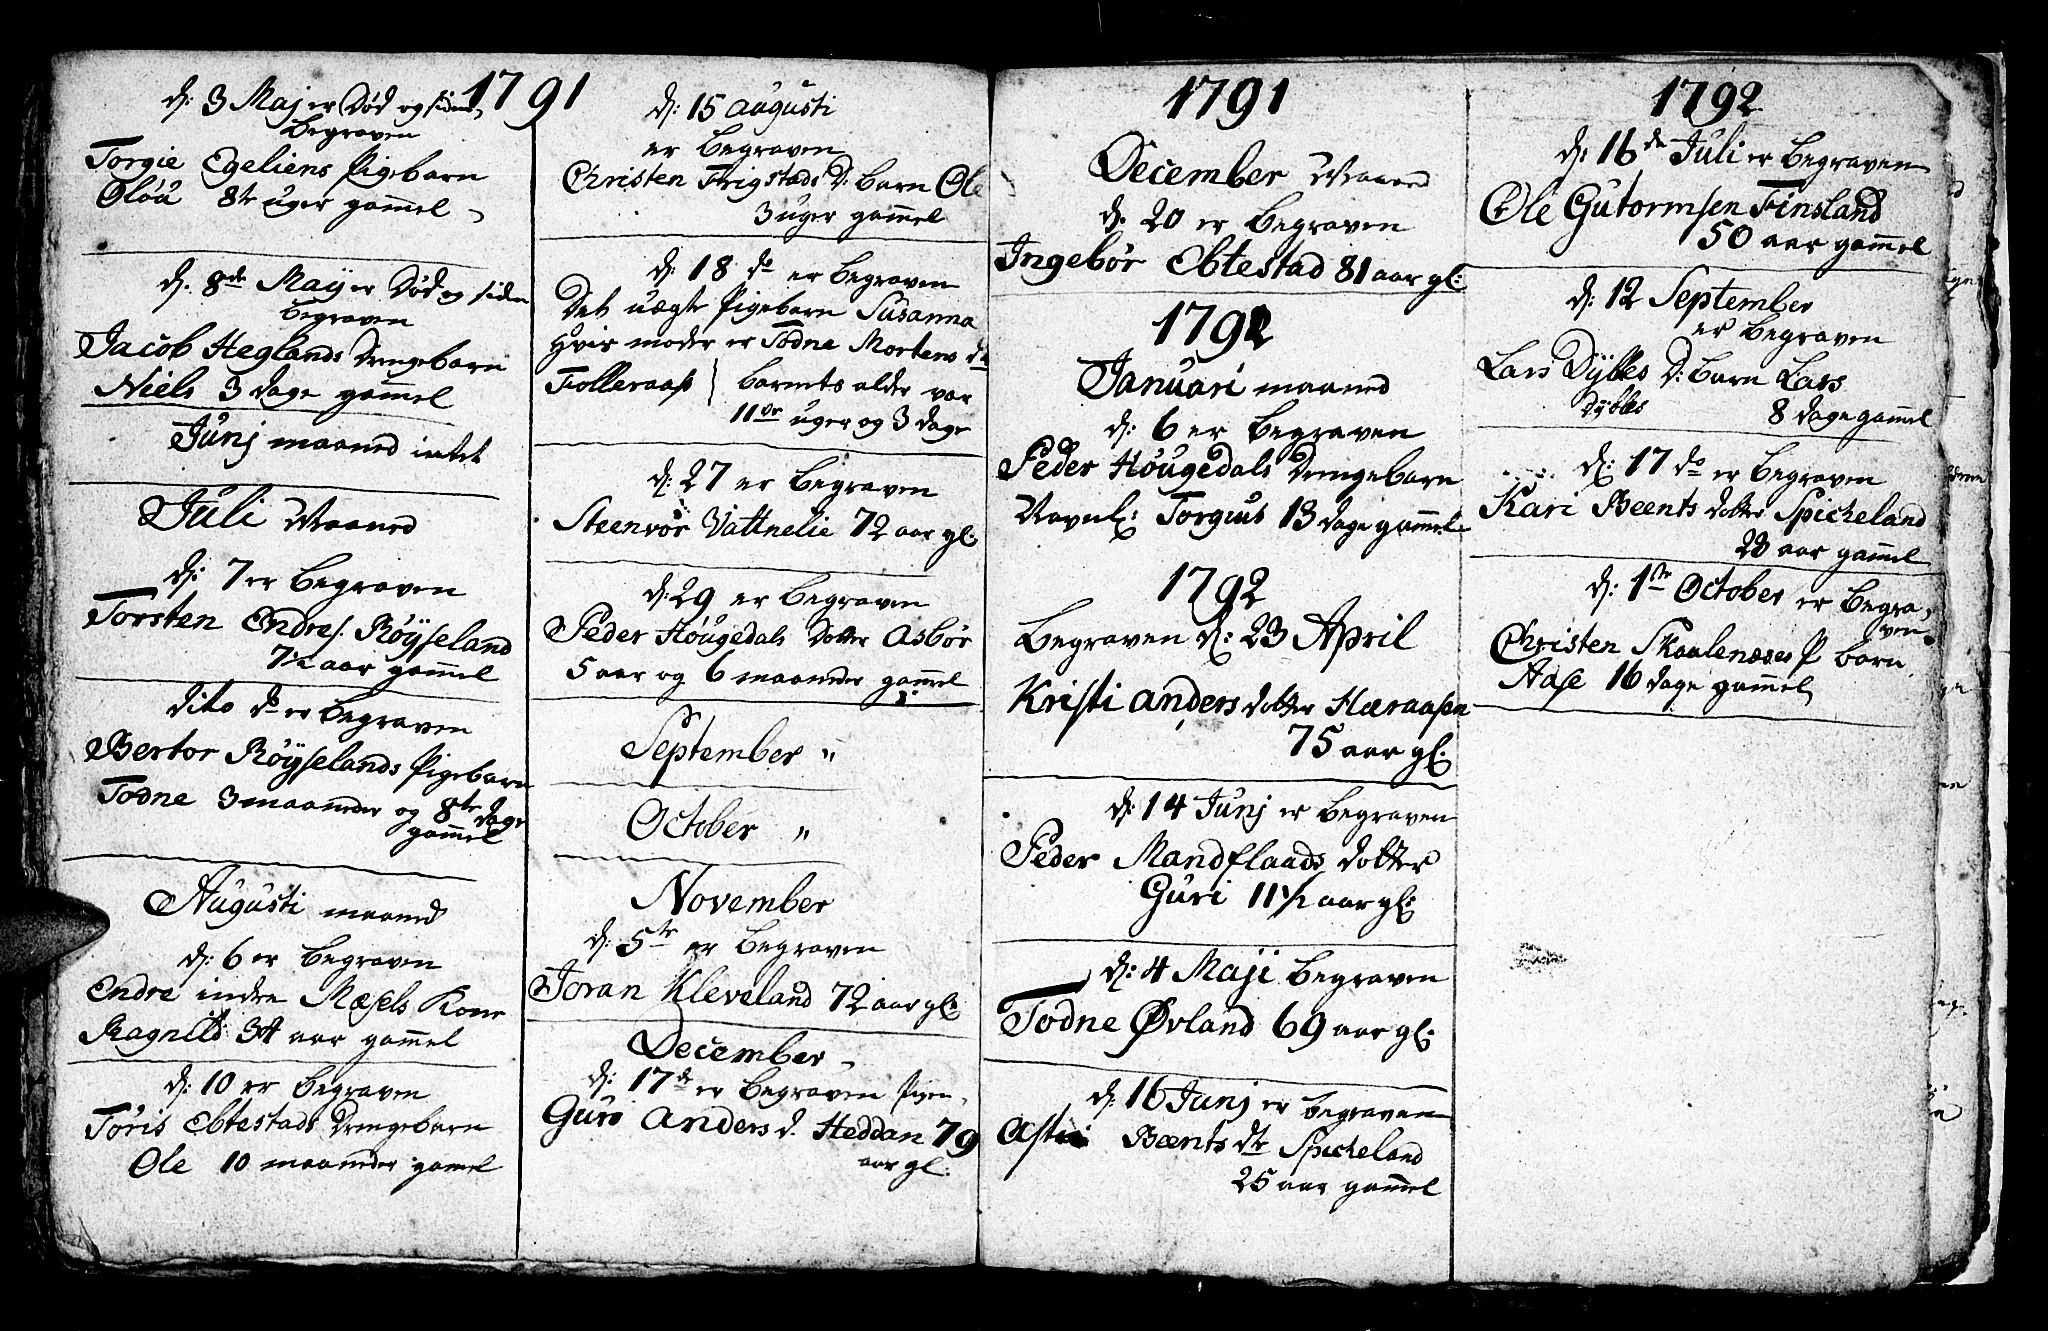 1791
d: 3 Maj er Død og siden
begraven
Torgie Egeliens Pigebarn
Oløu 8te uger gammel
d. 8de May er Død og siden
begraven
Jacob Heglands Drengebarn
Niels 3 dage gammel
Junj maaned intet
Juli Maaned
d: 7 er begraven
Torsten Endres. Röysseland
7 1/2 aar gammel
dito do er begraven
Bertor Röysselands Pigebarn
Todne 3 maaneder og 8te dage
gammel
Augusti maaned
d: 6 er begraven
Endre indre Mæsels Kone
Ragnild 34 aar gammel
d: 10 er begraven
Töris Ebtestads Drengebarn
Ole 10 maaneder gamel
d: 15 augusti
er begraven
Christen Frigstads D: barn Ole
3 uger gammel
d: 18 do er begraven
Det uægte Pigebarn Susanna
hvis moder er Todne Mortens
Folleraas barnets alder var
11ve uger og 3 dage
d: 27 er begraven
Steenvör Vattnelie 72 aar gl:
d: 29 er begraven
Peder Höugedals dotter Asbör
5 aar og 6 maaneder gammel
September "
October "
November
d: 5te er begraven
Joran Kleveland 72 aar gl:
December
d: 17de er begraven Pigen
Guro Anders d. Heddan 79
aar gl:
1791
December Maaned
d. 20 er begraven
Ingebör Ebtestad 81 aar gl:
1792
Januari maaned
d: 6 er begraven
Peder Höugedals Drengebarn
Navnl: Torgius 13 dage gammel
1792
Begraven d: 23 April
Kristi Anders dotter Haraasen
75 aar gl:
d: 14 Junj er begraven
Peder Mandflaads dotter
Guri 11 1/2 aar gl:
d: 4 Maji begraven
Todne Øvland 69 aar gl:
d: 16 Junj er begraven
Beents dtr Spicheland
25 aar gammel
1792
d: 16de Juli er begraven
Ole Gutormsen Finsland
50 aar gammel
d: 12 September
er begraven
Lars Dybles D: barn Lars
Dybles 8 dage gammel
d: 17 do er begraven
Kari Beents dotter Spicheland
23 aar gammel
d: 1ste October er begra,
ven
Christen Skaalenæses P barn
Aase 16 dage gammel